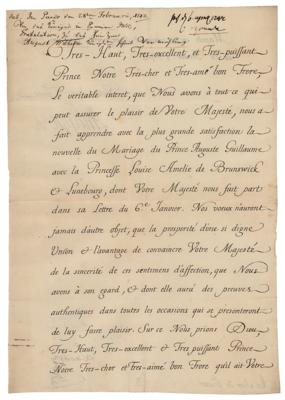 Tres-Haut, Tres-excellent, et Tres-puissant
Prince Notre Tres-cher et Tres-amé bon Frere.
Le veritable interet, que Nous avons à tout ce qui
peut assurer le plaisir de Votre Majesté, nous a
fait apprendre avec la plus grande satisfaction la
nouvelle du Mariage du Prince Auguste Guillaume
avec la Princesse Louise Amelie de Brunswick
& Lunebourg, dont Votre Majesté nous fait part
dans sa Lettre du 6e Janvier. Nos voeux n'auront
jamais d'autre objet, que la prosperité d'une si digne
Union & l'avantage de convaincre Votre Majesté
de la sincerité de ces sentimens d'affection, que Nous
avons à son egard, & dont elle aura des preuves
authentiques dans toutes les occasions qui se presenteront
de luy faire plaisir. Sur ce Nous prions Dieu,
Tres-Haut, Tres-excellent & Tres puissant Prince
Notre Tres-cher et Tres-aimé bon Frere qu'il ait Votre